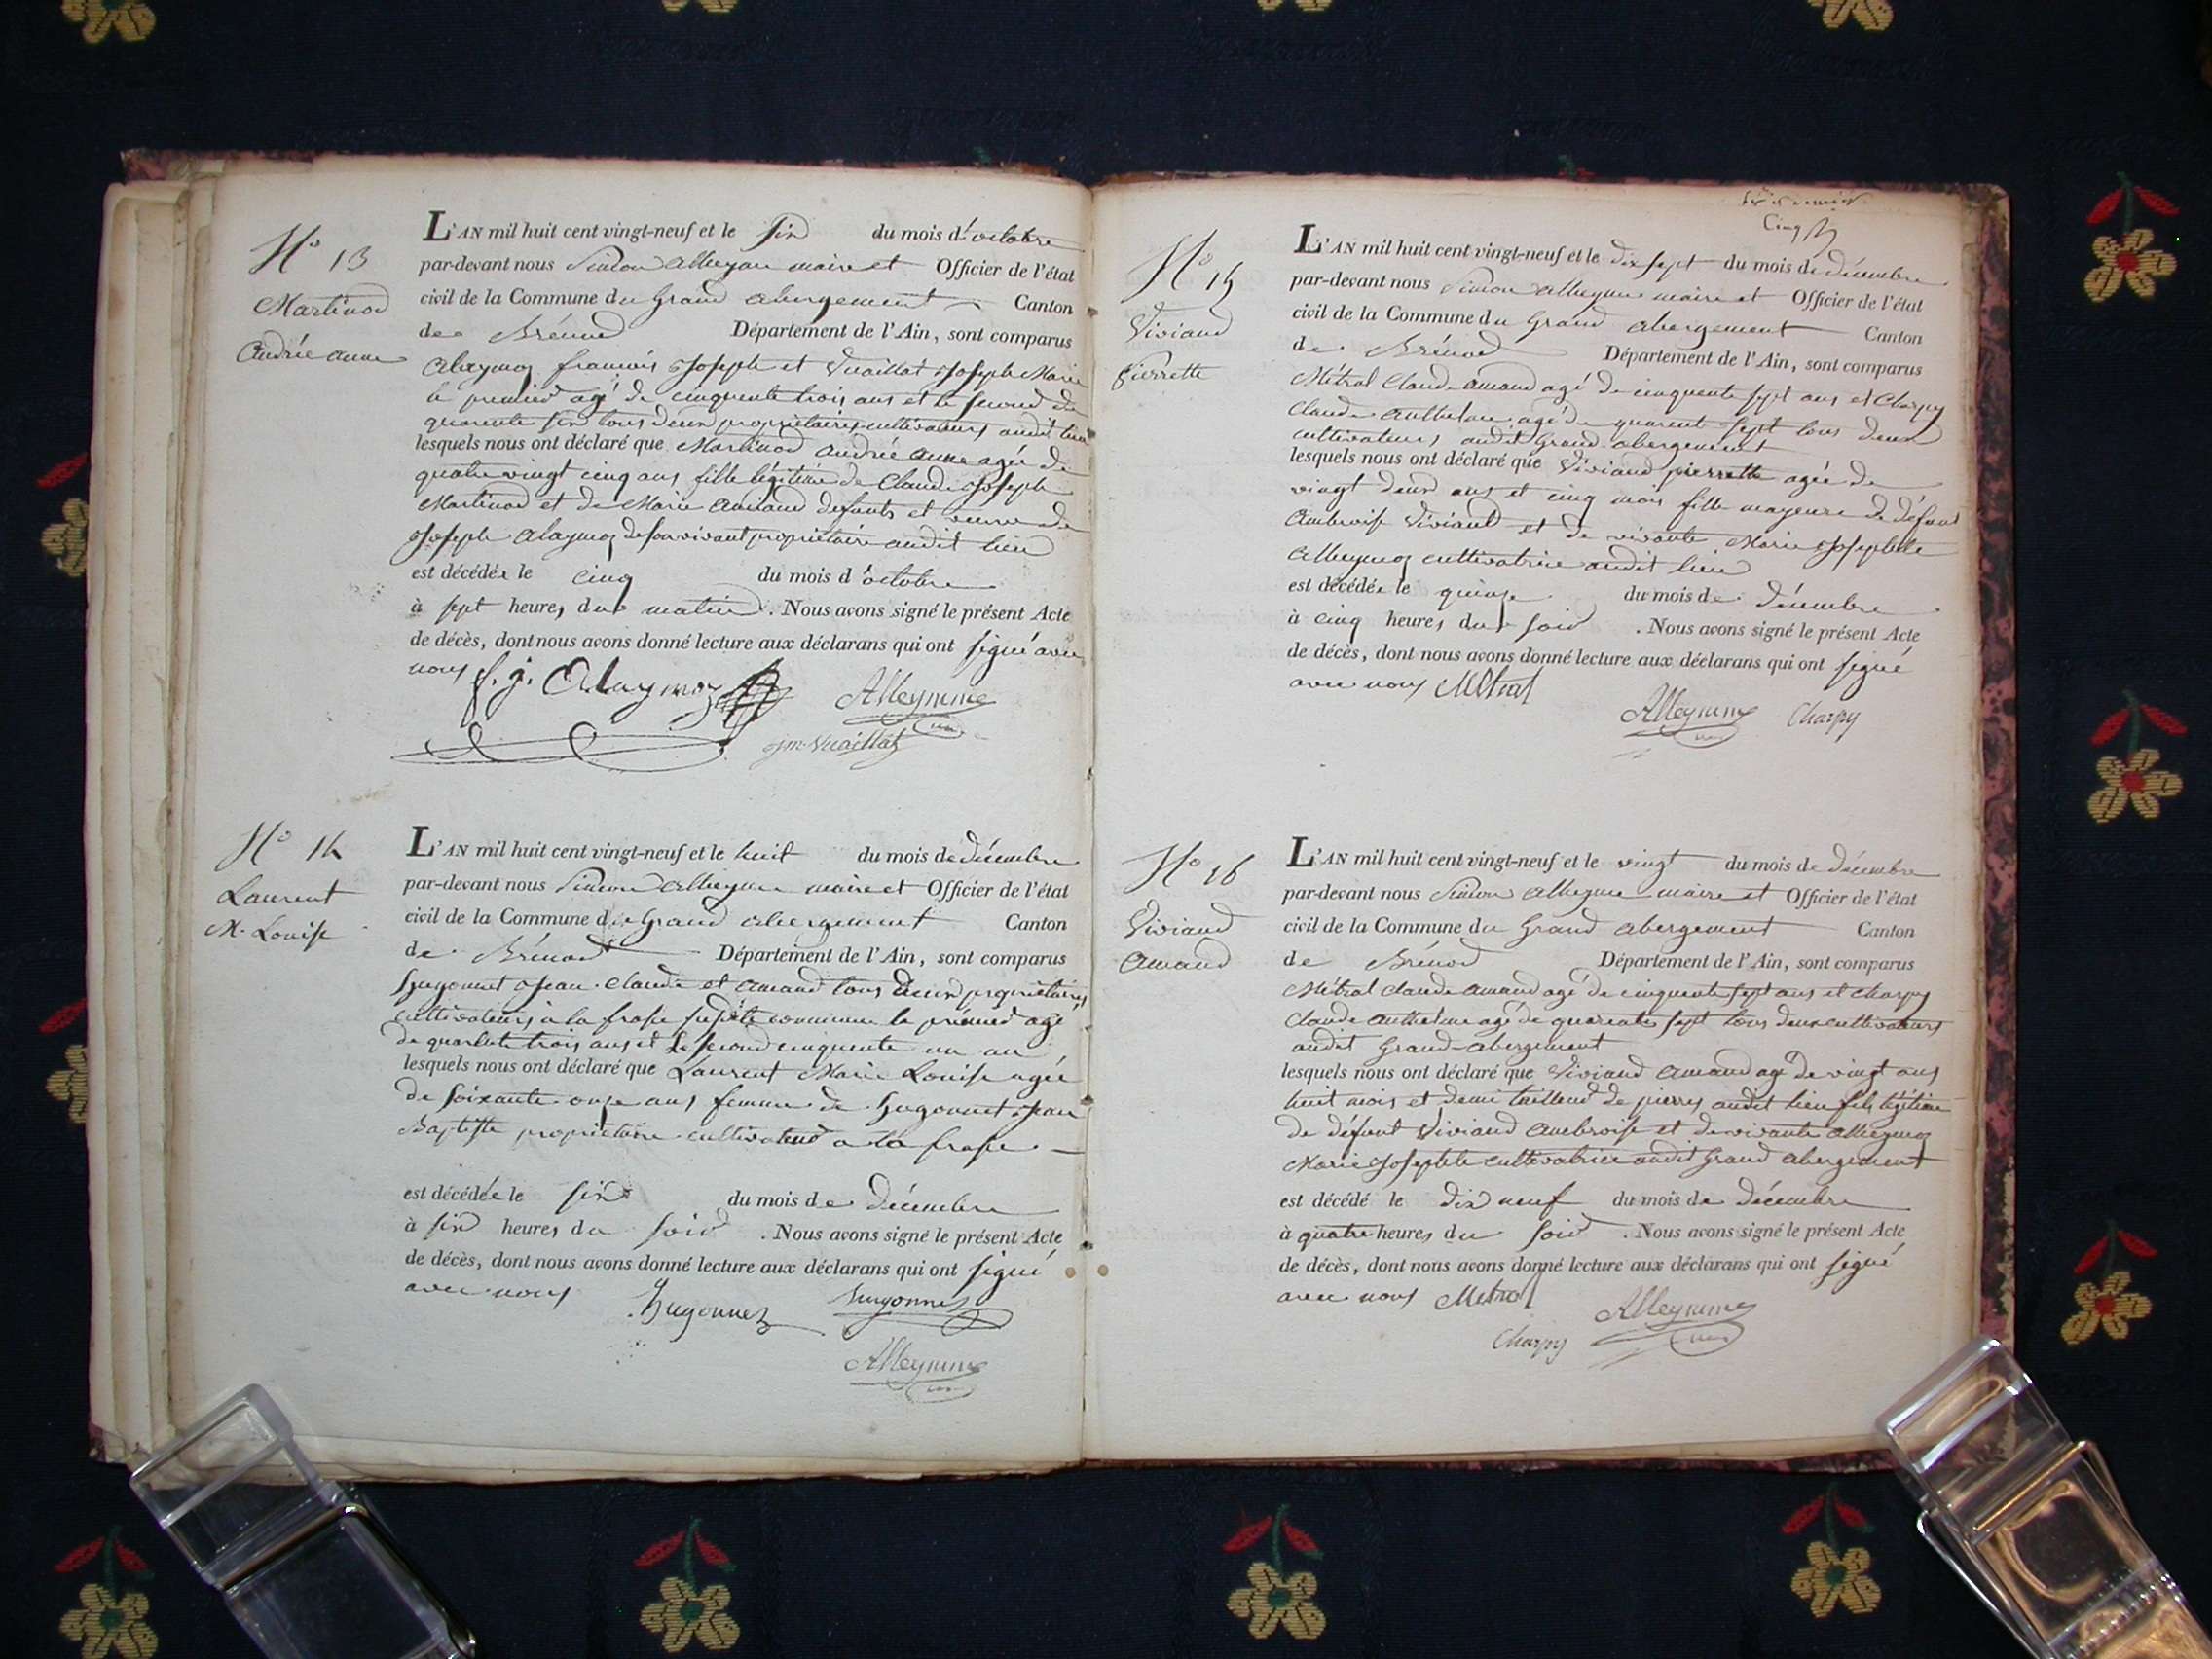 No 13
Martinod
Andrée anne
L'AN mil huit cent vingt-neuf et le six du mois d'octobre
par-devant nous Simon alleyme maire et Officier de l'état
civil de la Commune du Grand abergement Canton
de Brénod Département de l'Ain, sont comparus
alaymoz françois Joseph et Vuaillat Joseph Marie
le premier agé de cinquente trois ans et le second de
quarente six tous deux propriétaires cultivateurs audit lieu
lesquels nous ont déclaré que Martinod andrée anne agée de
quatre vingt cinq ans fille légitime de Claude Joseph
Martinod et de Marie amand defunts et veuve de
Joseph alaymoz de son vivant propriétaire audit lieu
est décédée le cinq du mois d'octobre
à sept heures du matin. Nous avons signé le présent Acte
de décès, dont nous avons donné lecture aux déclarans qui ont signé avec
nous f. j. Alaymoz Alleymme
jm Vuaillat
No 14
Laurent
M. Louise
L'AN mil huit cent vingt-neuf et le huit du mois de décembre
par-devant nous Simon alleyme maire et Officier de l'état
civil de la Commune du Grand abergement Canton
de Brénod Département de l'Ain, sont comparus
hugonnet Jean Claude et amand tous deux propriétaires
cultivateurs à la frasse susdite commune le premier agé
de quarente trois ans et le second cinquente un an
lesquels nous ont déclaré que Laurent Marie Louise agée
de soixante onze ans femme de hugonnet Jean
Baptiste propriétaire cultivateur a la frasse
est décédée le six du mois de décembre
à six heures du soir. Nous avons signé le présent Acte
de décès, dont nous avons donné lecture aux déclarans qui ont signé
avec nous hugonnet hugonnet
Alleymme
Cinq
No 15
Viviand
Pierrette
L'AN mil huit cent vingt-neuf et le dix sept du mois de décembre
par-devant nous Simon alleyme maire et Officier de l'état
civil de la Commune du Grand abergement Canton
de Brénod Département de l'Ain, sont comparus
Métral Claude amand agé de cinquente sept ans et Charpy
Claude anthelme agé de quarente sept tous deux
cultivateurs audit Grand abergement
lesquels nous ont déclaré que Viviand pierrette agée de
vingt deux ans et cinq mois fille mayeure de défunt
ambroise Viviand et de vivante Marie Josephte
alleymoz cultivatrice audit lieu
est décédée le quinze du mois de décembre
à cinq heures du soir. Nous avons signé le présent Acte
de décès, dont nous avons donné lecture aux déclarans qui ont signé
avec nous Métral
Alleymme Charpy
No 16
Viviand
amand
L'AN mil huit cent vingt-neuf et le vingt du mois de décembre
par-devant nous Simon alleyme maire et Officier de l'état
civil de la Commune du Grand abergement Canton
de Brénod Département de l'Ain, sont comparus
Métral claude amand agé de cinquente sept ans et Charpy
Claude anthelme agé de quarente sept tous deux cultivateurs
audit Grand-abergement
lesquels nous ont déclaré que Viviand amand agé de vingt ans
huit mois et demi tailleur de pierres audit lieu fils légitime
de défunt Viviand ambroise et de vivante alleymoz
Marie Josephte cultivatrice audit Grand abergement
est décédé le dix neuf du mois de décembre
à quatre heures du soir. Nous avons signé le présent Acte
de décès, dont nous avons donné lecture aux déclarans qui ont signé
avec nous Metral Alleymme
Charpy